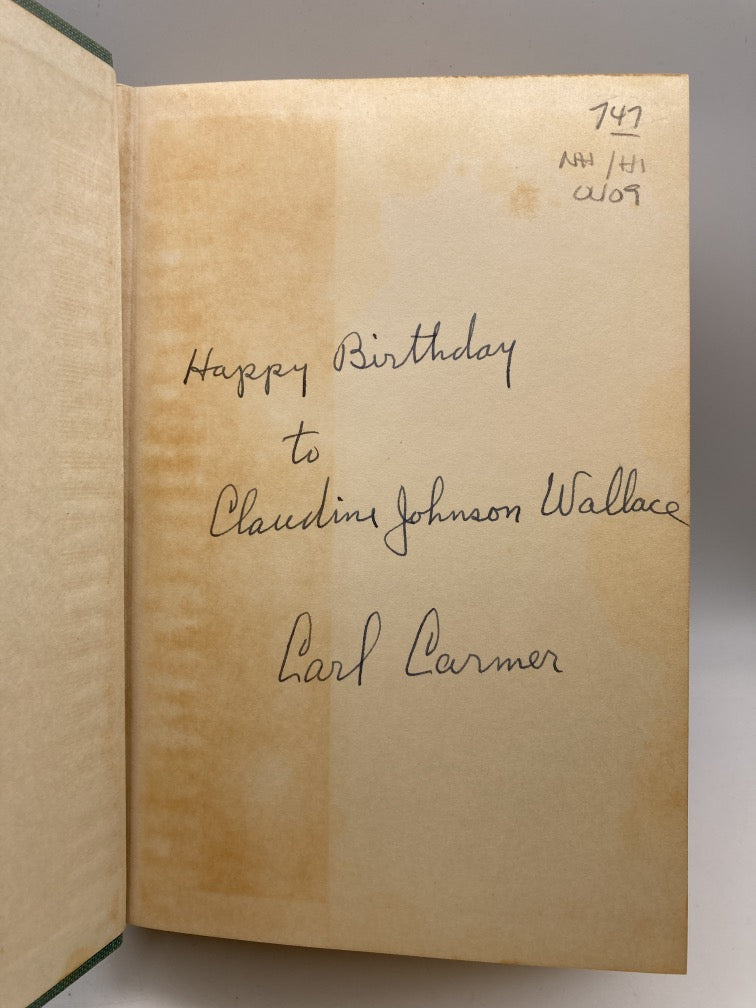 747
NH/HI
Happy Birthday
to
Claudine Johnson Wallace
Carl Carmer